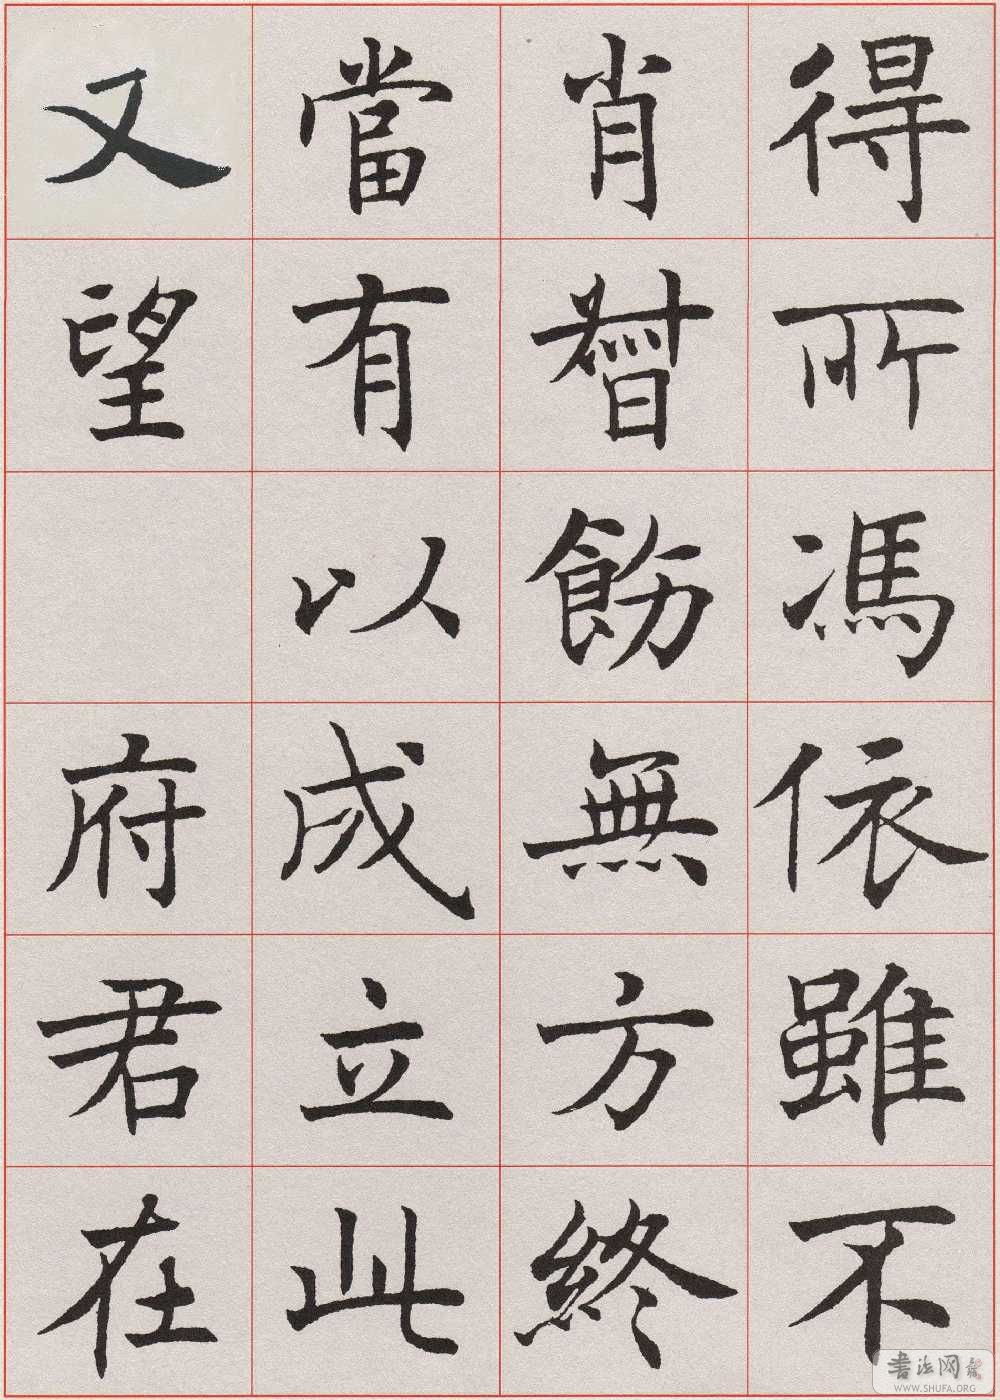 得所馮依雖不
肖飭無方終
當有以成立此
又望府君在
WWW.SHUFA.ORG